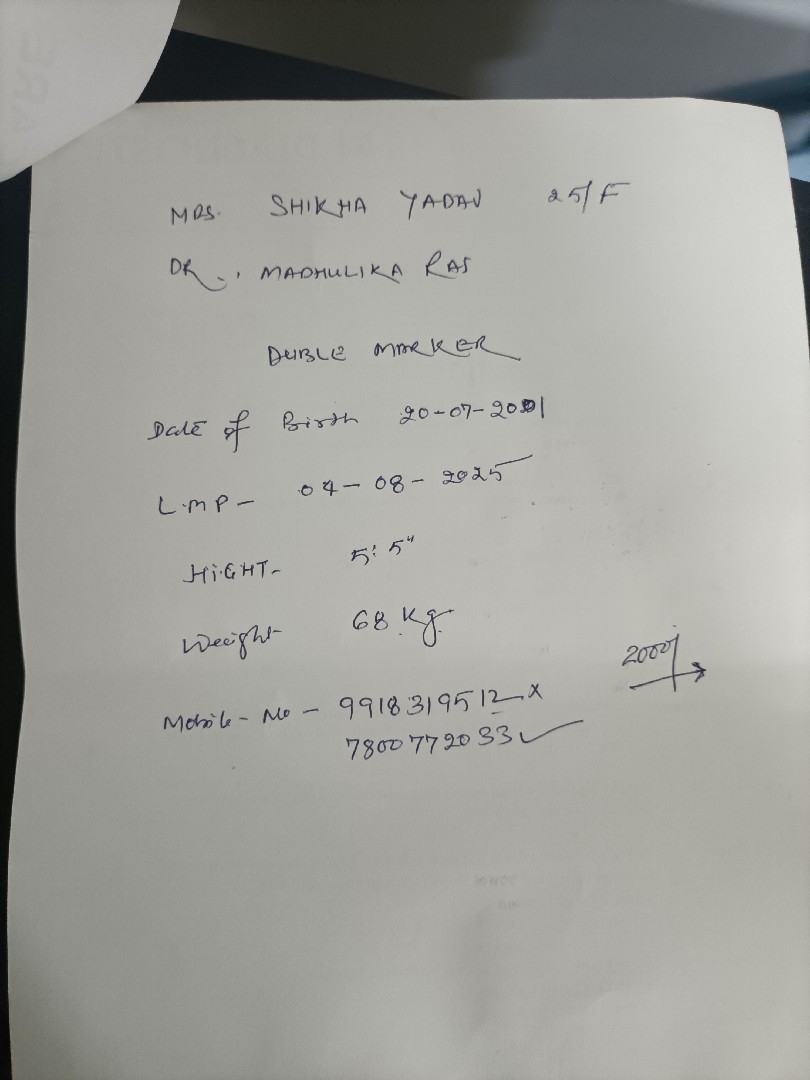 MRS. SHIKHA YADAV 25/F
DR., MADHULIKA RAI
DUBLE MARKER
Date of Birth 20-07-2001
L.M.P- 04-08-2025
HIGHT- 5' 5"
Weight- 68 Kg
2000/
Mobile-No - 9918319512 x
7800772033 ✓